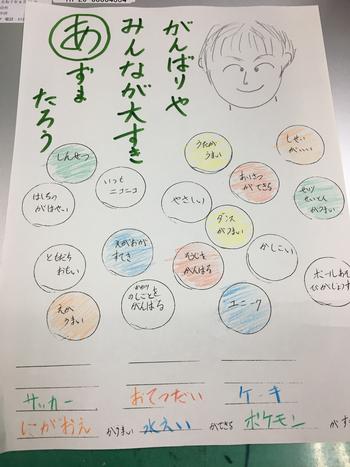 がんばりや
みんなが大すき
あずま
たろう
しんせつ
いつも
ニコニコ
うたが
うまい
しせい
がいい
はしるの
がはやい
やさしい
あいさつ
ができる
せいりせいとん
がうまい
ダンス
がうまい
ともだち
おもい
えがおが
すてき
そうじを
がんばる
かしこい
えが
うまい
かかり
のしごとを
がんばる
ユニーク
ボールあそ
サッカー
おてつだい
ケーキ
にがおえ
がうまい
水えい
ができる
ポケモン
がす